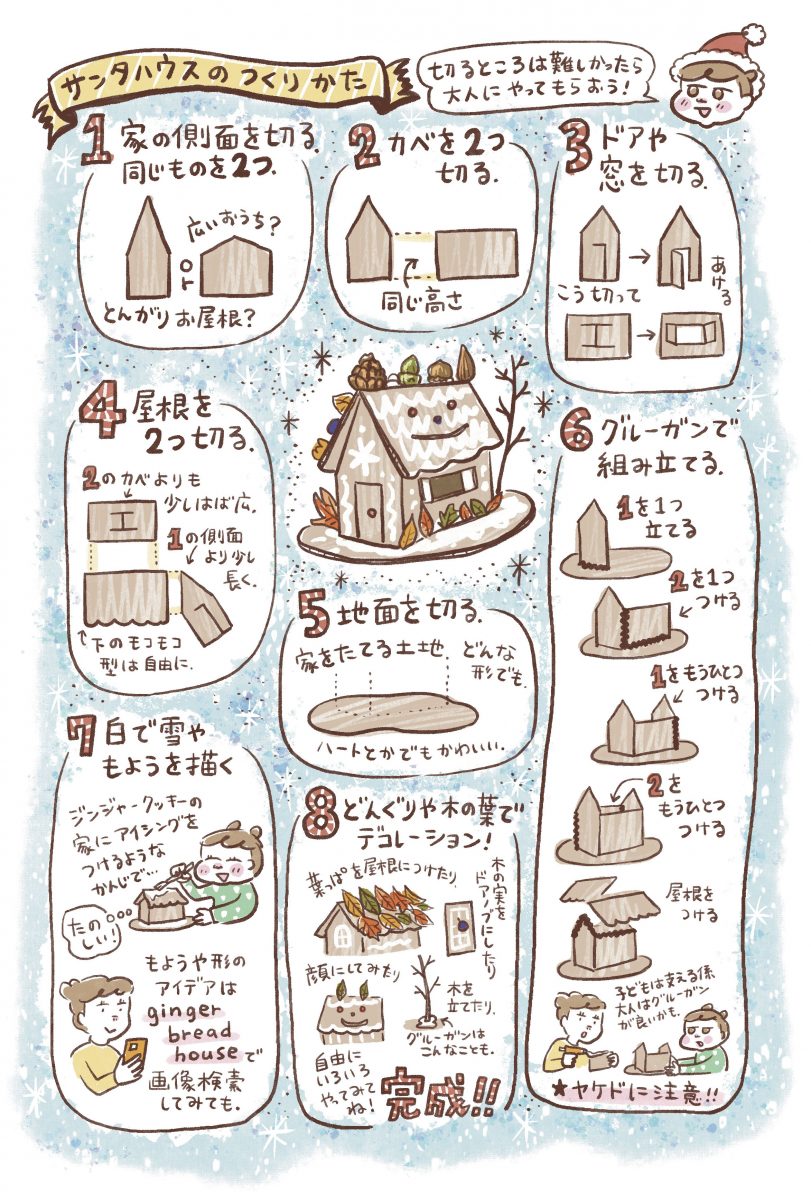 サンタハウスのつくりかた
切るところは難しかったら
大人にやってもらおう！
1 家の側面を切る.
同じものを2つ.
広いおうち？
or
とんがりお屋根？
2 カベを2つ
切る.
同じ高さ
3 ドアや
窓を切る.
こう切って
あける
4 屋根を
2つ切る.
2のカベよりも
少しはば広.
1の側面
より少し
長く.
下のモコモコ
型は自由に.
5 地面を切る.
家をたてる土地.
どんな
形でも.
ハートとかでもかわいい.
6 グルーガンで
組み立てる.
1を1つ
立てる
2を1つ
つける
1をもうひとつ
つける
2を
もうひとつ
つける
屋根を
つける
子どもは支える係
大人はグルーガン
が良いかも.
★ヤケドに注意！！
7 白で雪や
もようを描く
ジンジャークッキーの
家にアイシングを
つけるような
かんじで…
たの
しい！
もようや形の
アイデアは
ginger
bread
houseで
画像検索
してみても.
8 どんぐりや木の葉で
デコレーション！
葉っぱを屋根につけたり.
木の実を
ドアノブにしたり
顔にしてみたり
木を
立てたり.
グルーガンは
こんなことも.
自由に
いろいろ
やってみて
ね！
完成！！